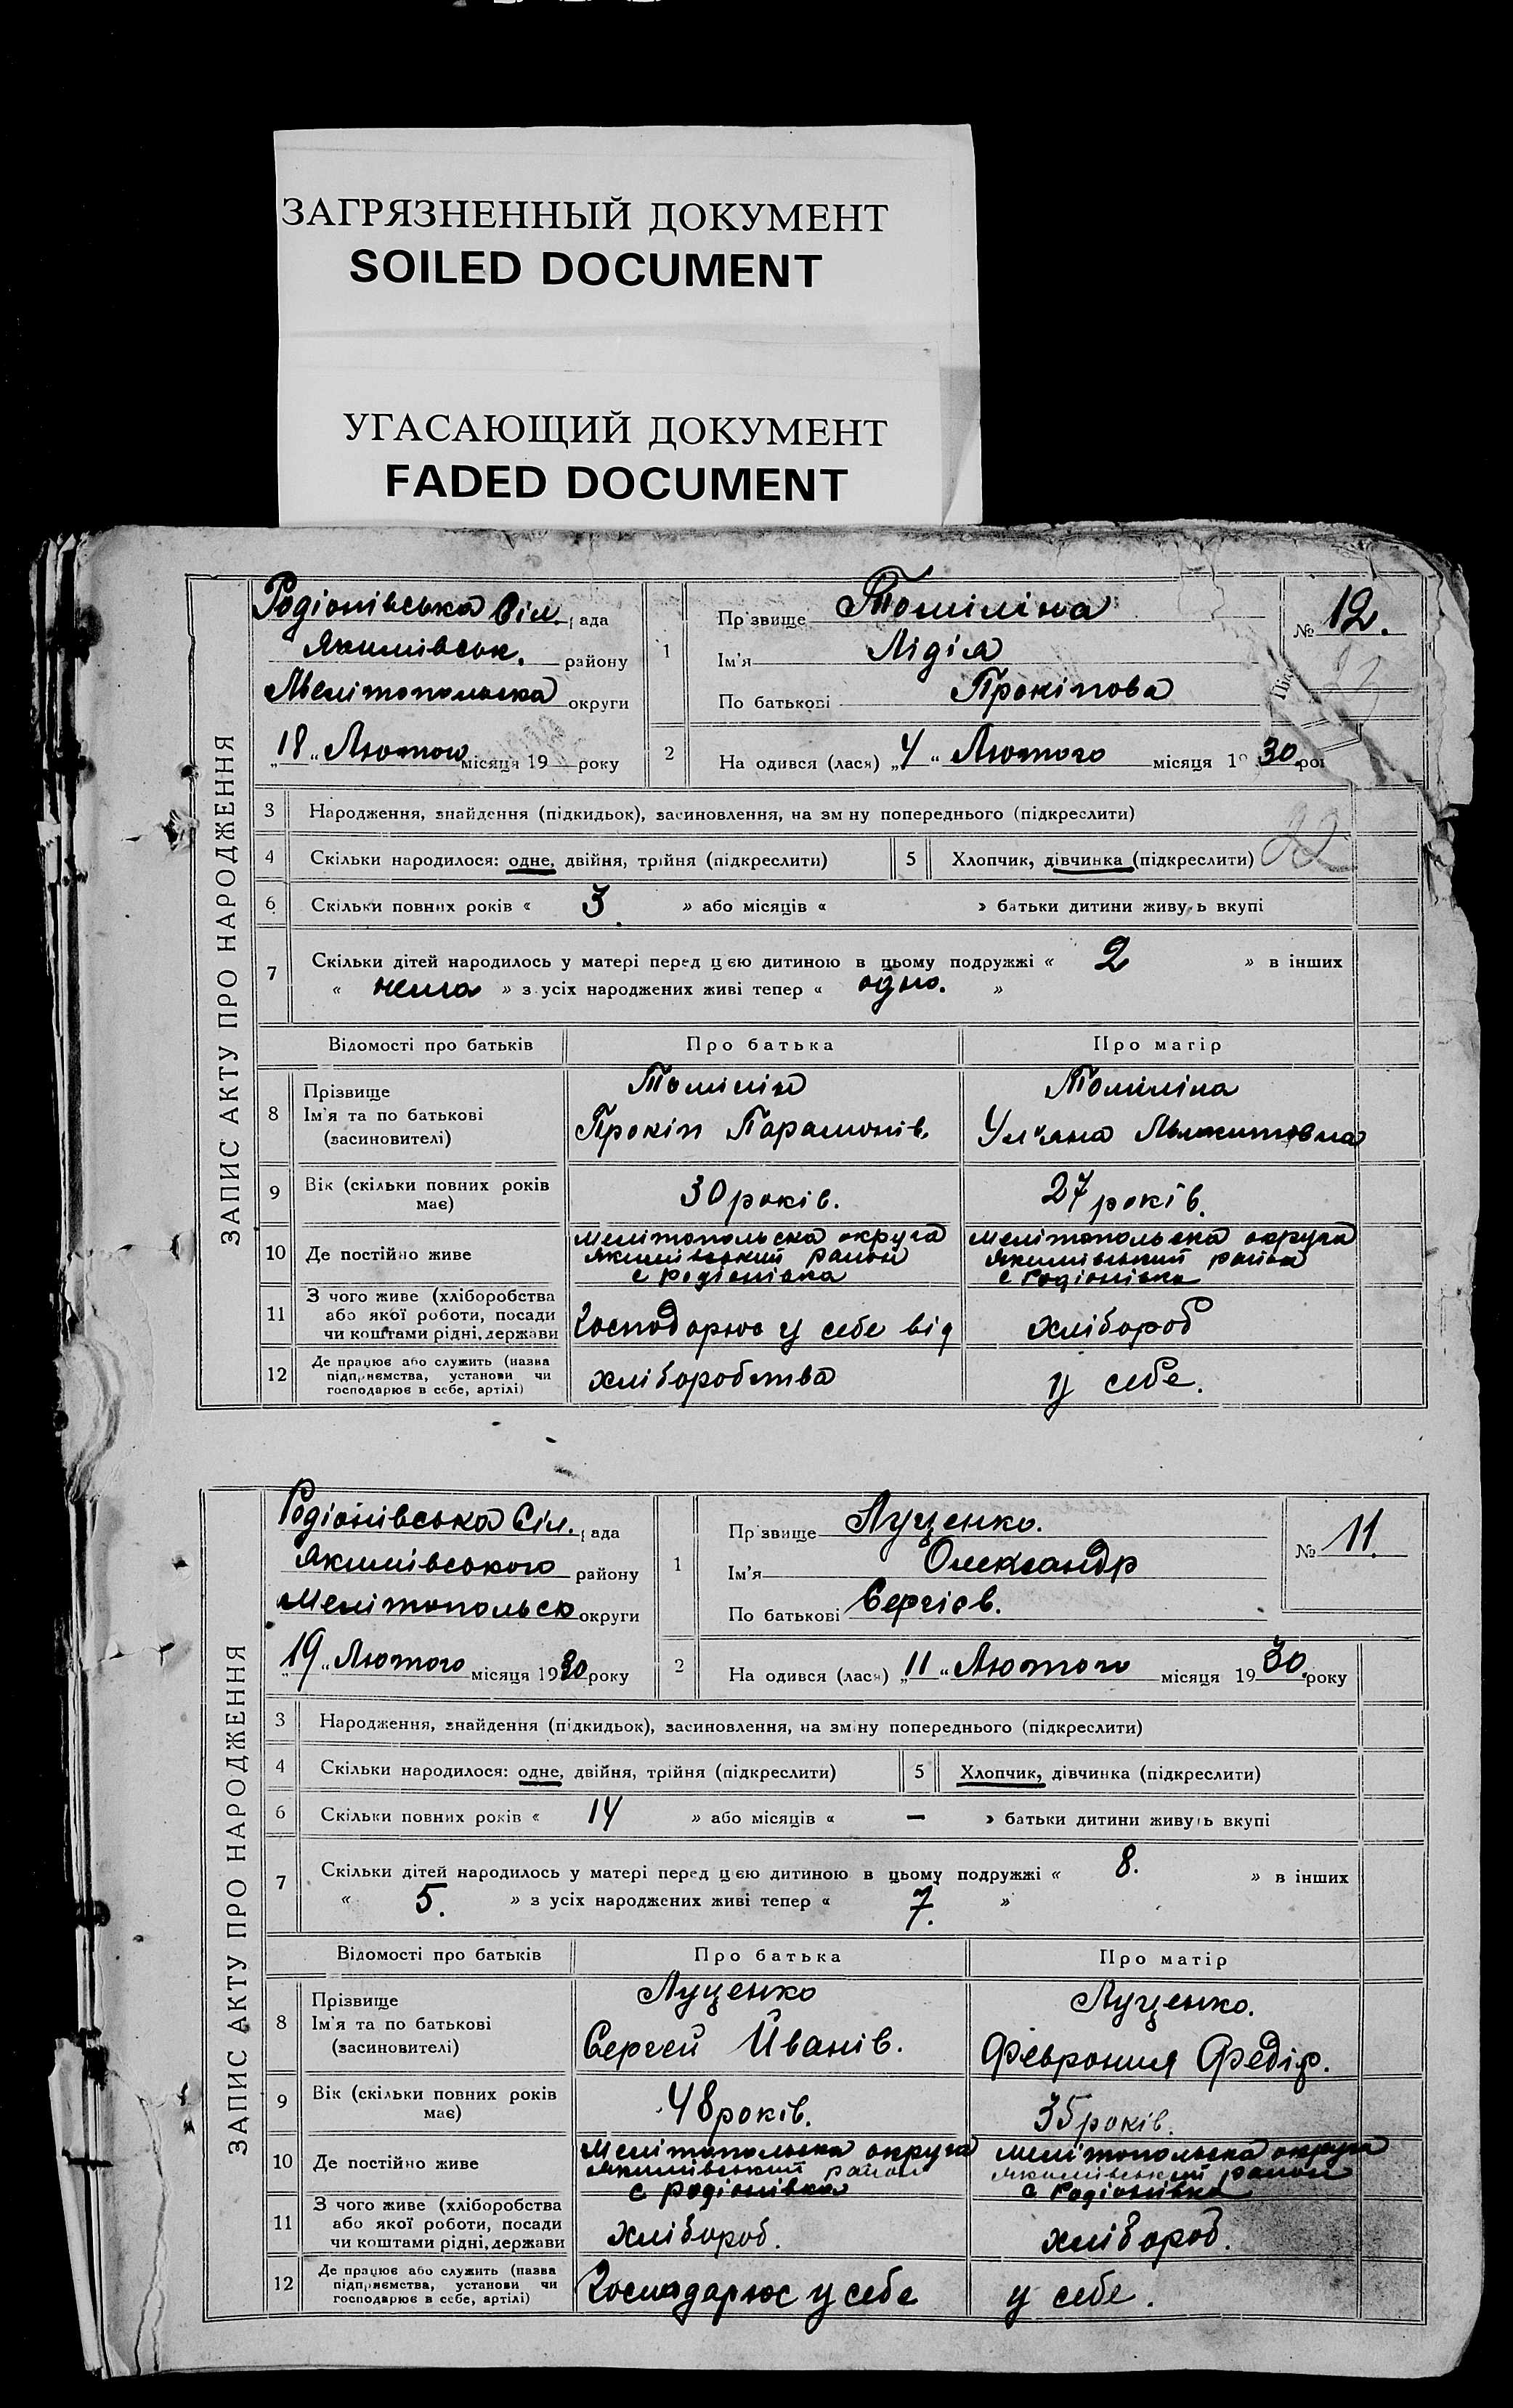 ЗАГРЯЗНЕННЫЙ ДОКУМЕНТ
SOILED DOCUMENT
УГАСАЮЩИЙ ДОКУМЕНТ
FADED DOCUMENT
ЗАПИС АКТУ ПРО НАРОДЖЕННЯ
Родіонівська Сіл. рада
Якимівськ. району
Мелітопольска округи
„18“ Лютого місяця 19 року
1
Пр звище Томіліна
Ім'я Лідія
По батькові Прокіпова
№ 12.
2
На одився (лася) „4“ Лютого місяця 19 30. рок
3 Народження, знайдення (підкидьок), засиновлення, на зм ну попереднього (підкреслити)
22
4 Скільки народилося: одне, двійня, трійня (підкреслити) 5 Хлопчик, дівчинка (підкреслити)
6 Скільки повних років « 3. » або місяців « » батьки дитини живуть вкупі
7 Скільки дітей народилось у матері перед цією дитиною в цьому подружжі « 2 » в інших
« нема » з усіх народжених живі тепер « одно. »
Відомості про батьків Про батька Про матір
8 Прізвище
Ім'я та по батькові
(засиновителі)
Томілін
Прокіп Парамонів.
Томиліна
Ул'яна
9 Вік (скільки повних років має) 30 років. 27 років.
10 Де постійно живе
мелітопольска округа
якимівський район
с Родіонівка
мелітопольска округа
якимівський района
с Родіонівка
11 З чого живе (хліборобства
або якої роботи, посади
чи коштами рідні, держави
Господорює у себе від
хлібороб
12 Де працює або служить (назва
підприємства, установи чи
господарює в себе, артілі)
хліборобства
у себе.
ЗАПИС АКТУ ПРО НАРОДЖЕННЯ
Родіонівська Сіл. рада
Якимівського району
Мелітопольск округи
„19“ Лютого місяця 1930 року
1
Пр звище Луценко.
Ім'я Олександр
По батькові Сергієв.
№ 11.
2
На одився (лася) „11“ Лютого місяця 19 30. року
3 Народження, знайдення (підкидьок), засиновлення, на зміну попереднього (підкреслити)
4 Скільки народилося: одне, двійня, трійня (підкреслити) 5 Хлопчик, дівчинка (підкреслити)
6 Скільки повних років « 14 » або місяців « — » батьки дитини живуть вкупі
7 Скільки дітей народилось у матері перед цією дитиною в цьому подружжі « 8. » в інших
« 5. » з усіх народжених живі тепер « 7. »
Відомості про батьків Про батька Про матір
8 Прізвище
Ім'я та по батькові
(засиновителі)
Луценко
Сергей Иванів.
Луценко.
Феврония Федір.
9 Вік (скільки повних років має) 48 років. 35 років.
10 Де постійно живе
Мелітопольска округа
якимівський район
с родіонівка
мелітопольска округа
якимівський район
с Родіонівка
11 З чого живе (хліборобства
або якої роботи, посади
чи коштами рідні, держави
хлібороб.
хлібороб.
12 Де працює або служить (назва
підприємства, установи чи
господарює в себе, артілі)
Господарює у себе
у себе.